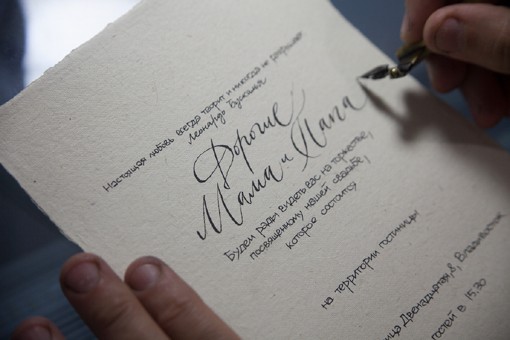 Настоящая любовь всегда творит и никогда не разрушает
Леонардо Бускалья
Дорогие
Мама и Папа
Будем рады видеть вас на торжестве,
посвященному нашей свадьбе,
которое состоится
на территории гостиницы
Двенадцатая,8, Владивосток
гостей в 15.30